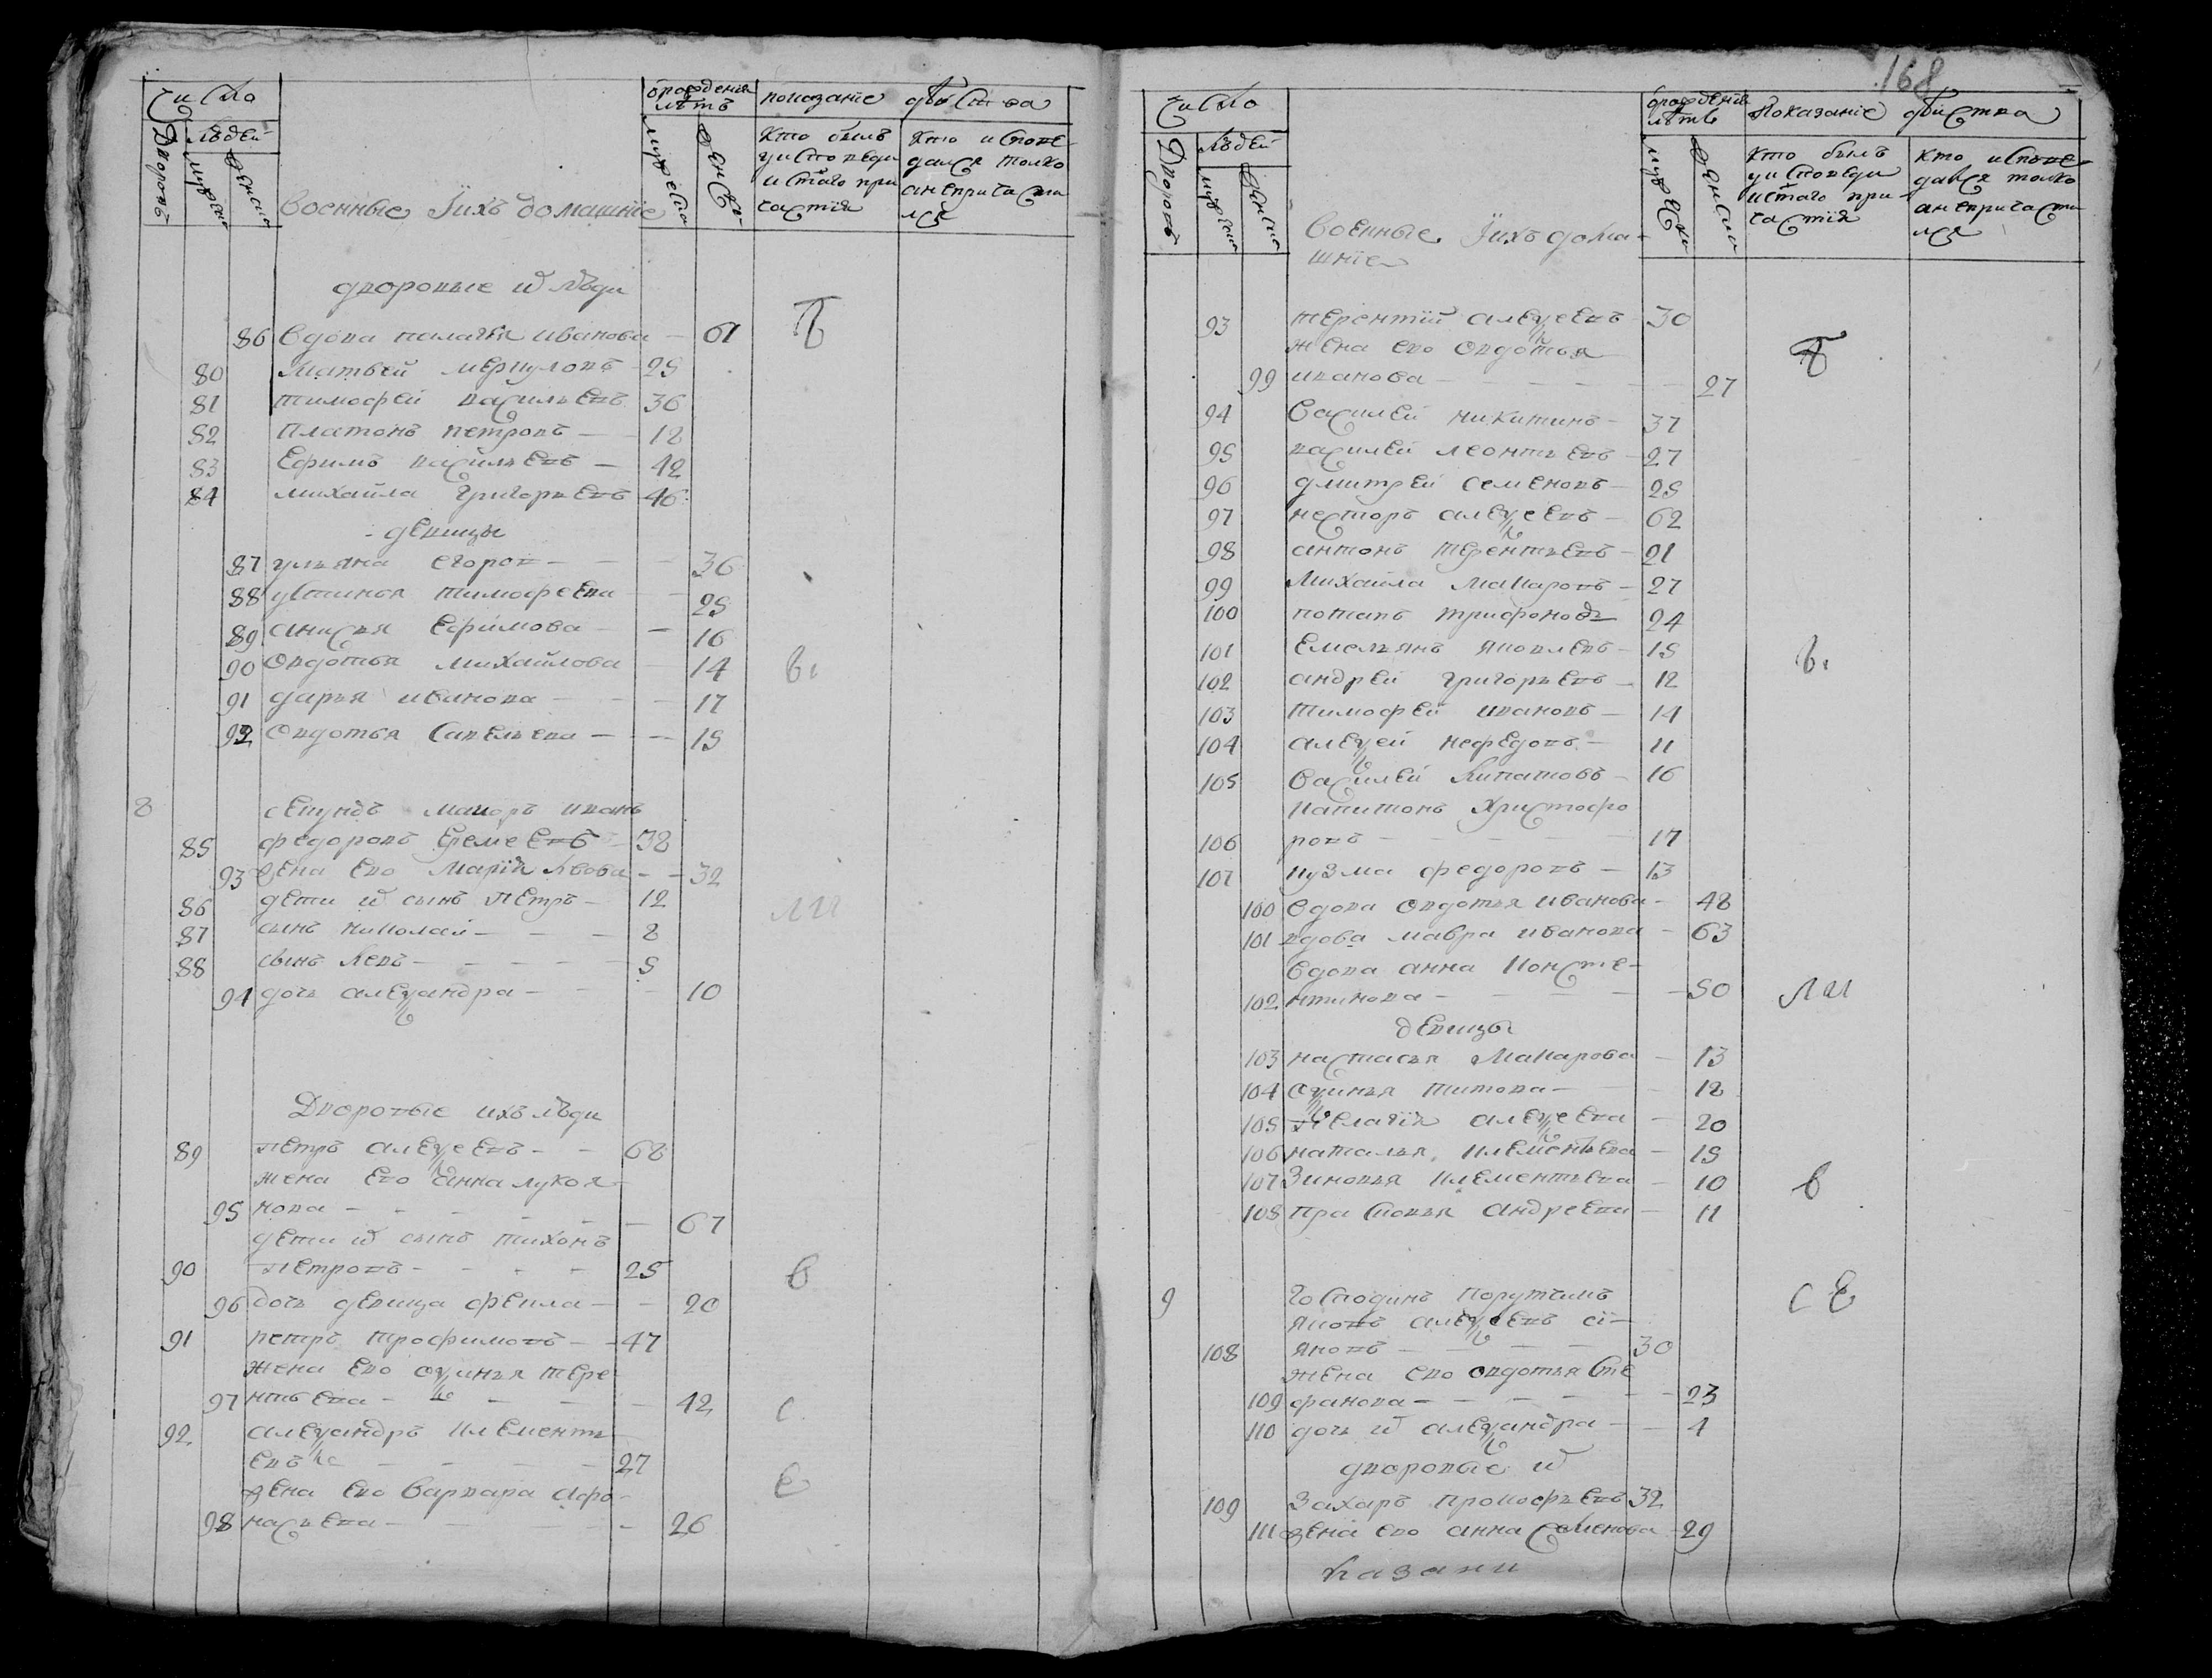 число
дворовъ
людей
мужеска
женска
Военные їихъ домашнїе
ѿрожденїя
лѣтъ
мужеска
женска
показанїе действа
кто былъ
уисповеди
истаго при
частїя
кто испове-
дался толко
анепричасти
лся
дворовые ѿ люди
86 вдова палагѣя иванова — 61
80 Матвей меркуловъ 25
81 тимофей василъевъ 36
82 платонъ петровъ — 18
83 Ефимъ василъевъ — 42
84 михайла григоръевъ 46
девицы
87 ульяна егоров — 36
88 устинья тимофеева 25
89 анисья Ефимова — 16
90 овдотья михайлова 14
91 даръя иванова — 17
92 овдотья савельева — 15
8 секундъ маиоръ иванъ
85 федоровъ Еремеевъ — 38
93 жена ево Марїя львова — 32
86 дети ѿ сынъ петръ — 12
87 сынъ николай — 8
88 сынъ левъ — 5
94 дочь алеѯандра — 10
Дворовые ихъ люди
89 петръ алеѯеевъ — 68
жена ево анна лукоя-
95 нова — 67
дети ѿ сынъ тихонъ
90 петровъ — 25
96 дочь девица фекла — 20
91 петръ трофимовъ — 47
жена ево оѯинья тере
97 нтьева — 42
92 алеѯандръ клементь
евъ — 27
жена ево варвара афо-
98 насьева — 26
168
число
дворовъ
людей
мужеска
женска
Военные їихъ дома-
шнїе
ѿрожденїя
лѣтъ
мужеска
женска
Показанїе действа
кто былъ
уисповеди
истаго при-
частїя
кто испове-
дался толко
анепричасти
лся
93 терентїй алеѯеевъ 30
жена ево овдотья
99 иванова — 27
94 василей никитинъ — 37
95 василей леонтьевъ — 27
96 дмитрей семеновъ — 25
97 несторъ алеѯеевъ — 62
98 антонъ терентьевъ — 21
99 Михайла макаровъ — 27
100 потапъ трифоновъ 24
101 Емельянъ яковлевъ — 15
102 андрей григоръевъ — 12
103 тимофей ивановъ — 14
104 алеѯей нефедовъ — 11
105 василей кипатовъ — 16
капитонъ христофо
106 ровъ — 17
107 кузма федоровъ — 13
100 вдова овдотья иванова — 48
101 вдова мавра иванова — 63
вдова анна консте-
102 нтинова — 50
девицы
103 настасья макарова — 13
104 оѯинья титова — 18
105 Пелагїя алеѯеева — 20
106 наталья клеменьева — 15
107 Зиновья клементьева — 10
108 прасковья андреева — 11
9 господинъ порутчикъ
яковъ алеѯеевъ сї-
108 яновъ — 30
жена ево овдотья сте
109 фанова — 23
110 дочь ѿ алеѯандра — 4
дворовые ѿ
109 Захаръ прокофьевъ 32
111 жена ево анна семенова 29
казани